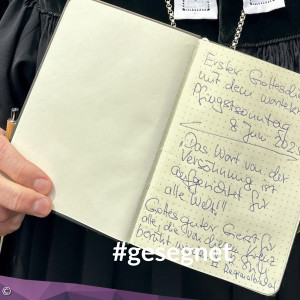 Erster Gottesdi
mit dem
Pfingstsonntag
8. Juni 202
"Das Wort von der
Versöhnung ist
aufgerichtet für
alle Welt!"
Gottes guter Geist für
alle, die von
berührt
#gesegnet
©